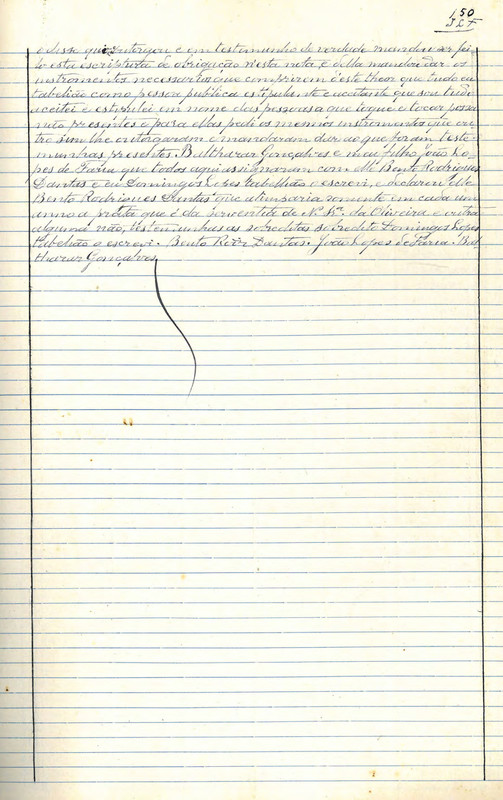 50
e disse que outorgou e em testimunho de verdade mandou ser fei-
to esta escriptura de obrigação n'esta nota, e d'ella mandou dar os
instrumentos necessarios que comprirem d'este theor que tudo eu
tabelião como pessoa publica estipulante e aceitante que sou tudo
aceitei e estipulei em nome das pessoas a que toque e tocar possa
não presentes e para elles pedi os mesmos instrumentos que
elle outorgaram e mandaram dar ao que foram teste-
munhas presentes Balthazar Gonçalves e meu filho João Lo-
pes de Faria que todos aqui assignaram com elle Bento Rodrigues
Dantas e eu Domingos Lopes tabelião o escrevi, e declarou elle
Bento Rodrigues Dantas que alumiaria somente em cada um
anno a que é da serventia de N. Sra. da Oliveira e outra
alguma não, testemunhas as sobreditas sobredito Domingos Lopes
tabelião o escrevi. Bento Roiz Dantas. João Lopes de Faria. Bal
thazar Gonçalves